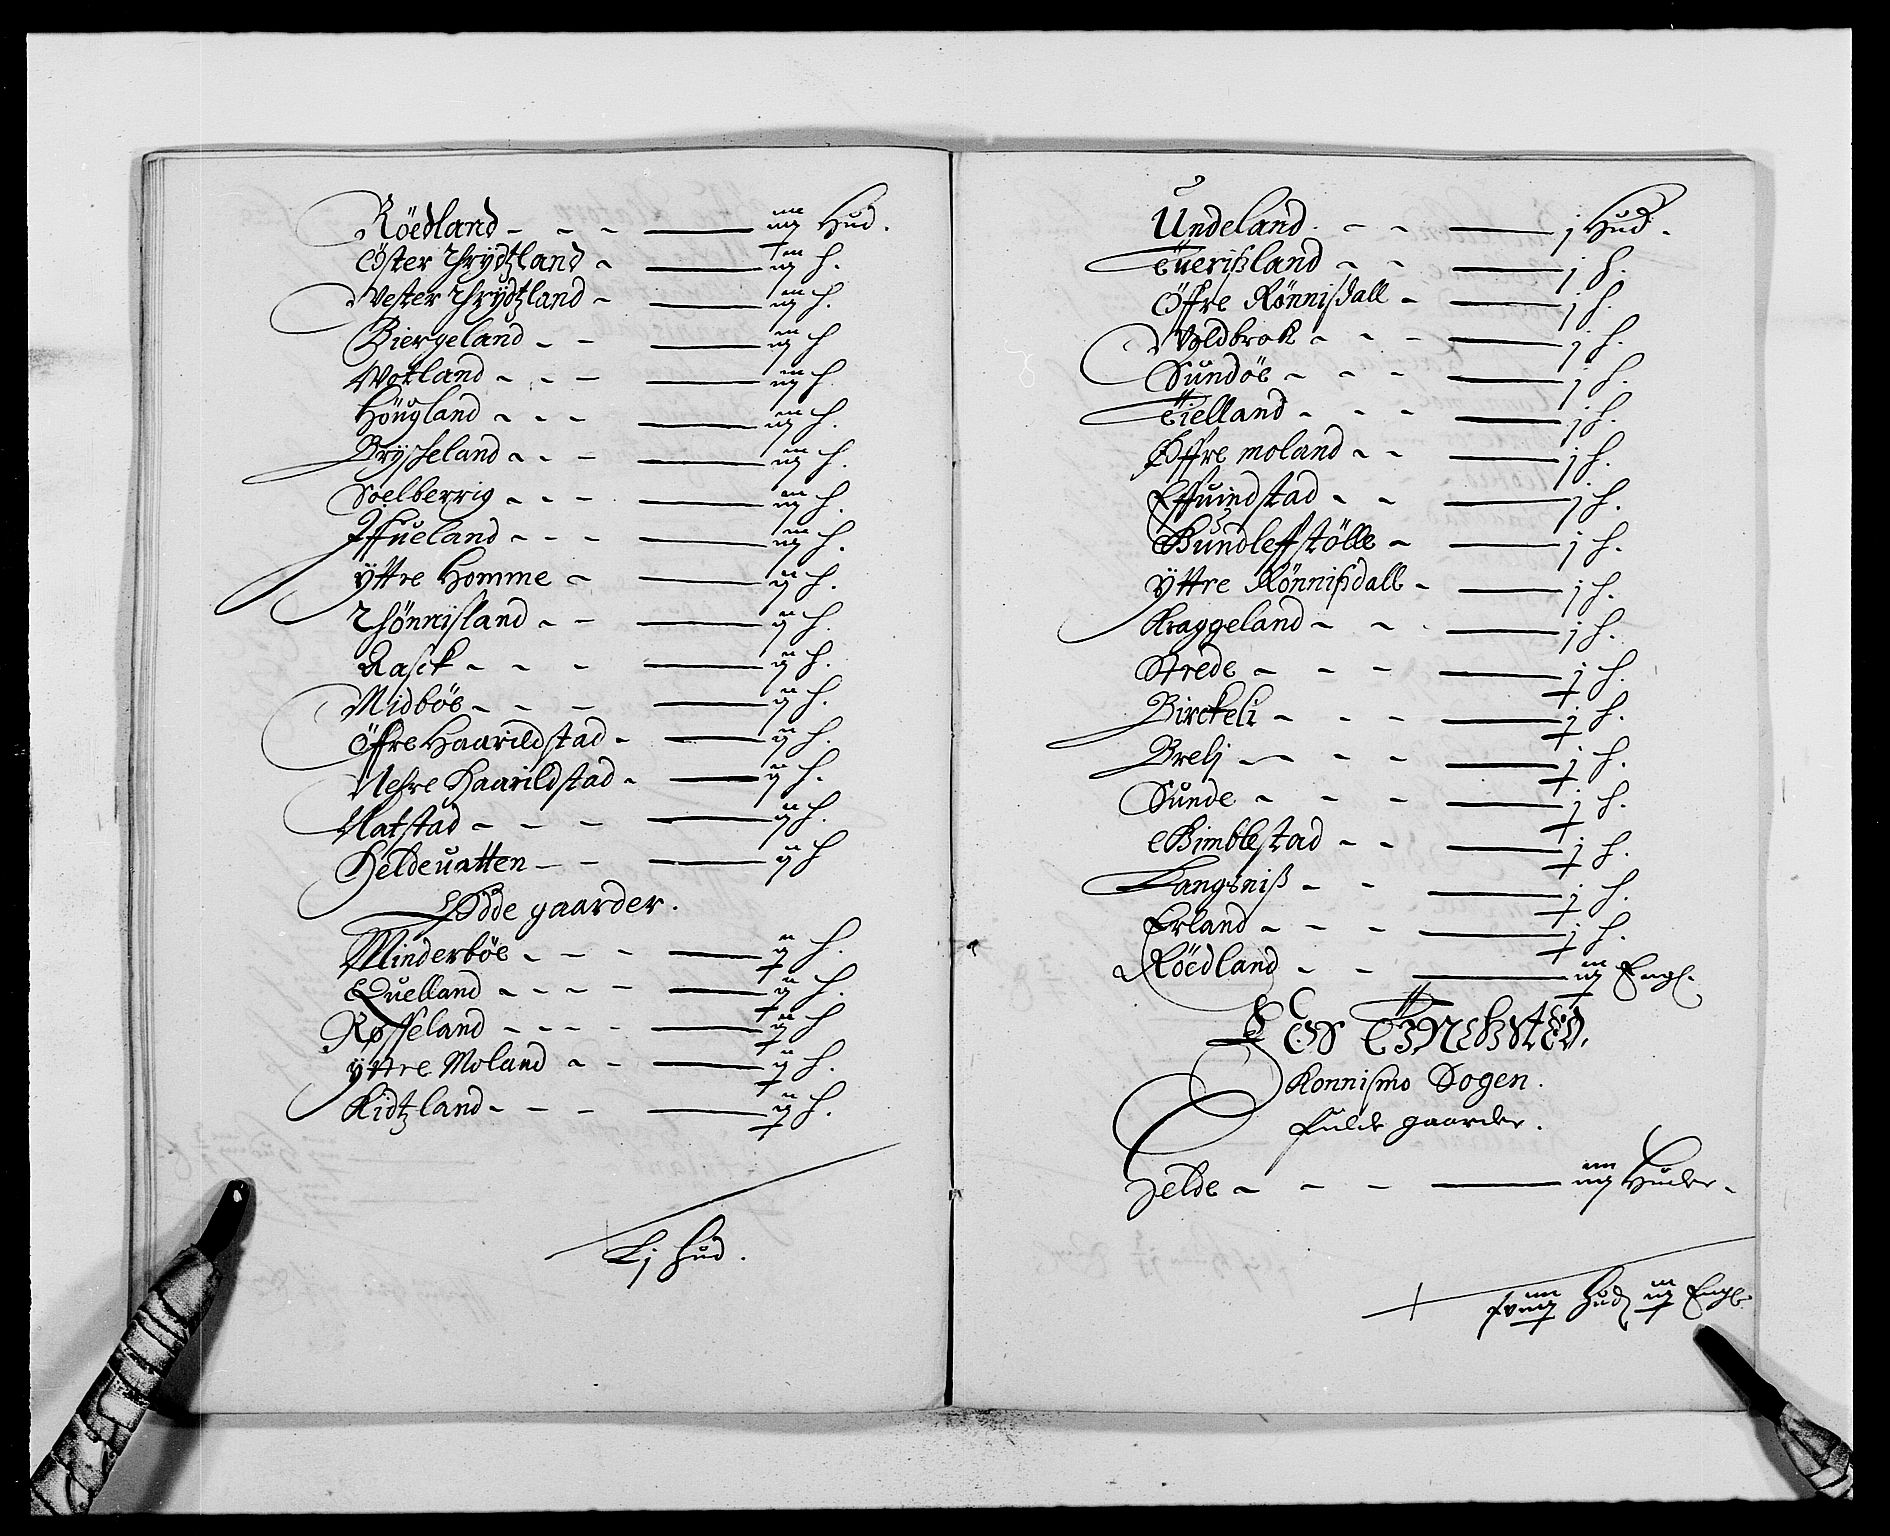 Röedland - - - iij Hud.
Öster Thrydtzland - iij h.
Wester Thrydtzland - iij h.
Biergeland - - iij h
Wotland - - - iij h.
Höugland - - - iij h.
Brysseland - - - iij h.
Soelberrig - - - iij h.
Iffueland - - - iij h.
Yttre Homme - ij h.
Thönnisland - - ij h.
Aasck - - - ij h.
Midböe - - - ij h.
Öffre Haarildstad - ij h.
Nehre Haarildstad - ij h.
Natstad - - - ij h.
Heldeuatten - - ij h
Ödde gaarder.
Minderböe - - - ij h.
Quelland - - - - ij h.
Røsseland - - - - ij h
Yttre Moland - - ij h.
Kidtzland - - - ij h.
Lj hud.
Undeland - - j Hud.
Tuerißland - - j h.
Öffre Rönnisdall - j h.
Woldbrok - - - j h.
Sundöe - - - j h.
Tielland - - - j h.
Öffre moland - - j h.
Effuindstad - - j h.
Gundleffstölle - j h.
Yttre Rönnißdall - j h.
Kraggeland - - j h.
Strede - - - j h.
Birckeli - - - j h.
Brelj - - - j h.
Sunde - - - j h.
Gimblestad - - j h.
Langsniß - - j h.
Erland - - - j h.
Röedland - - iij Engl.
Konnismo Sogen.
fulde gaarder.
Helde - - - iiij Huder.
Hud iij Engl.